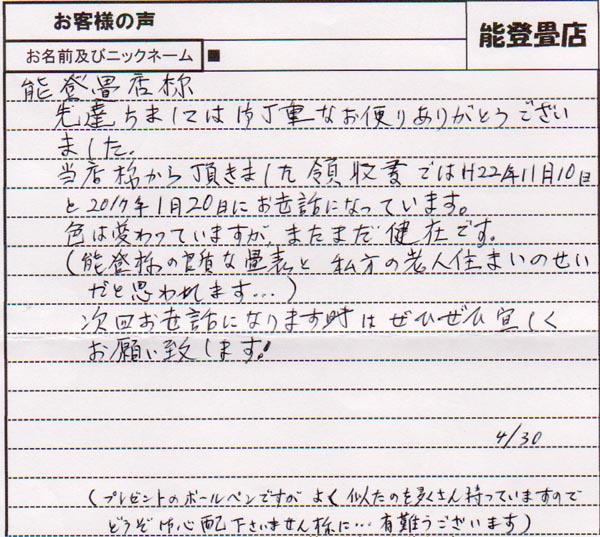 お客様の声
能登畳店
お名前及びニックネーム
能登畳店様
先達ちましては御丁重なお便りありがとうござい
ました。
当店様から頂きました領収書ではH22年11月10日
と2017年1月20日にお世話になっています。
色は変わっていますが、まだまだ健在です。
(能登様の良質な畳表と 私方の老人住まいのせい
だと思われます…)
次回お世話になります時は ぜひぜひ宜しく
お願い致します!
4/30
(プレゼントのボールペンですが よく似たのを多くさん持っていますので
どうぞ御心配下さいません様に… 有難うございます)